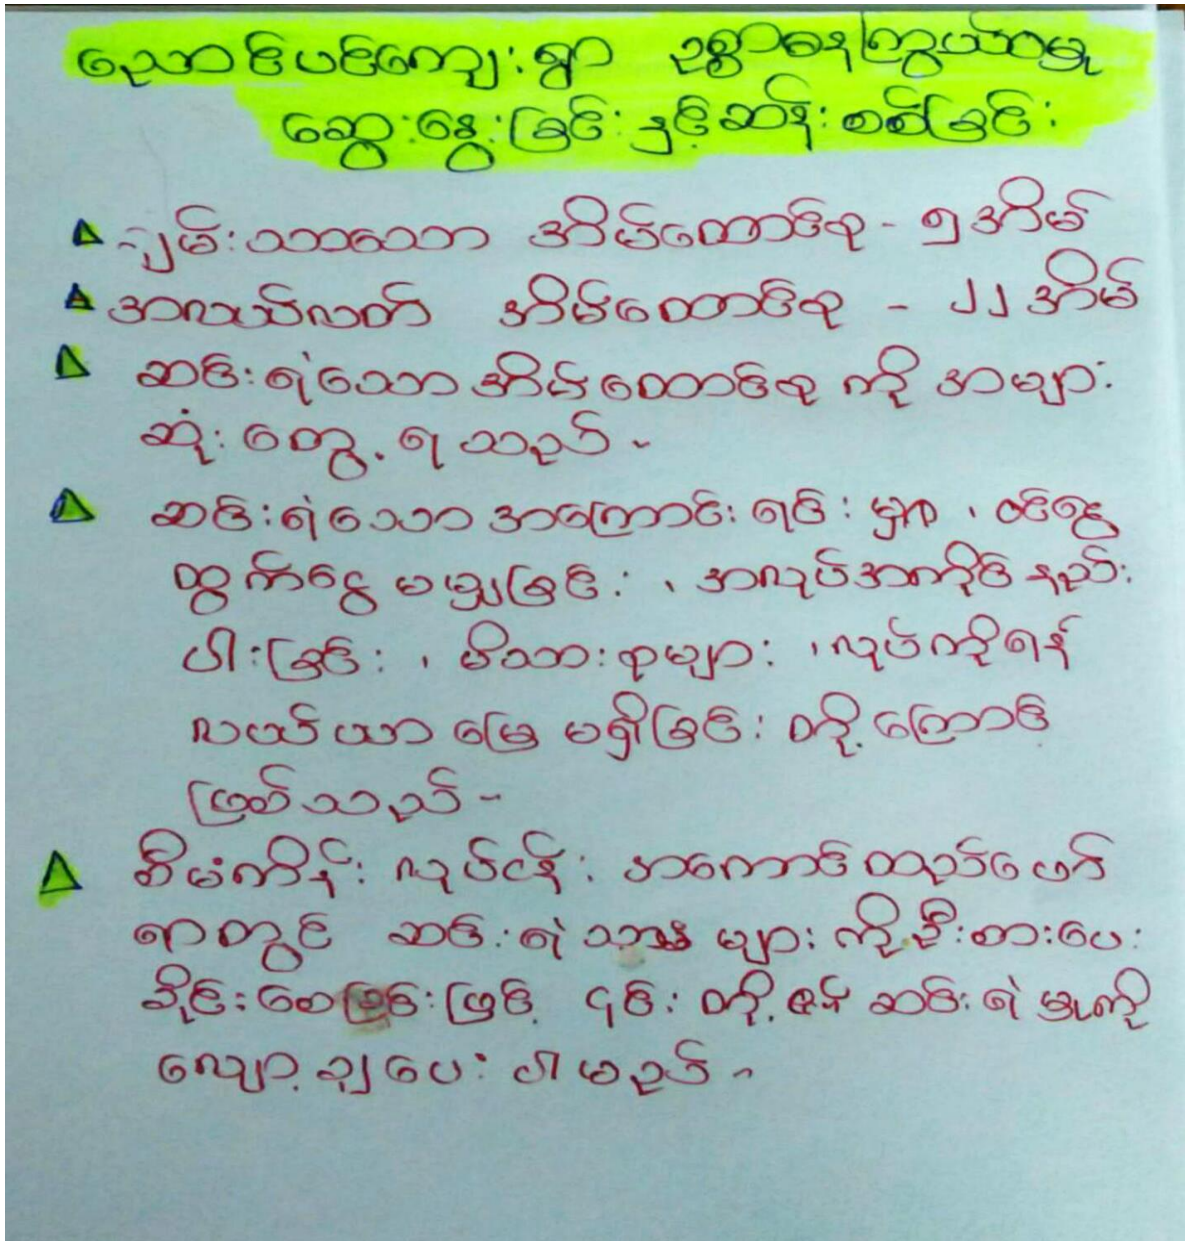 ညောင်ပင်ကျေးရွာ ဥစ္စာဓနကြွယ်ဝမှု
ဆွေးနွေးခြင်းနှင့်ဆန်းစစ်ခြင်း
ချမ်းသာသော အိမ်ထောင်စု - ၅ အိမ်
အလယ်လတ် အိမ်ထောင်စု - ၂၂ အိမ်
ဆင်းရဲသောအိမ်ထောင်စု ကို အများ
ဆုံး တွေ့ရသည်-
ဆင်းရဲသောအကြောင်းရင်းမှာ ၊ ဝင်ငွေ
ထွက်ငွေ မမျှခြင်း ၊ အလုပ်အကိုင်နည်း
ပါးခြင်း ၊ မိသားစုများ ၊ လုပ်ကိုင်ရန်
လယ်ယာ မြေ မရှိခြင်း တို့ကြောင့်
ဖြစ်သည်-
စီမံကိန်း လုပ်ငန်း အကောင်ထည်ဖော်
ရာတွင် ဆင်းရဲသား များ ကို ဦးစားပေး
ခိုင်းစေခြင်းဖြင့် ၎င်းတို့ဇန် ဆင်းရဲမှုကို
လျော့ချပေးပါမည်-